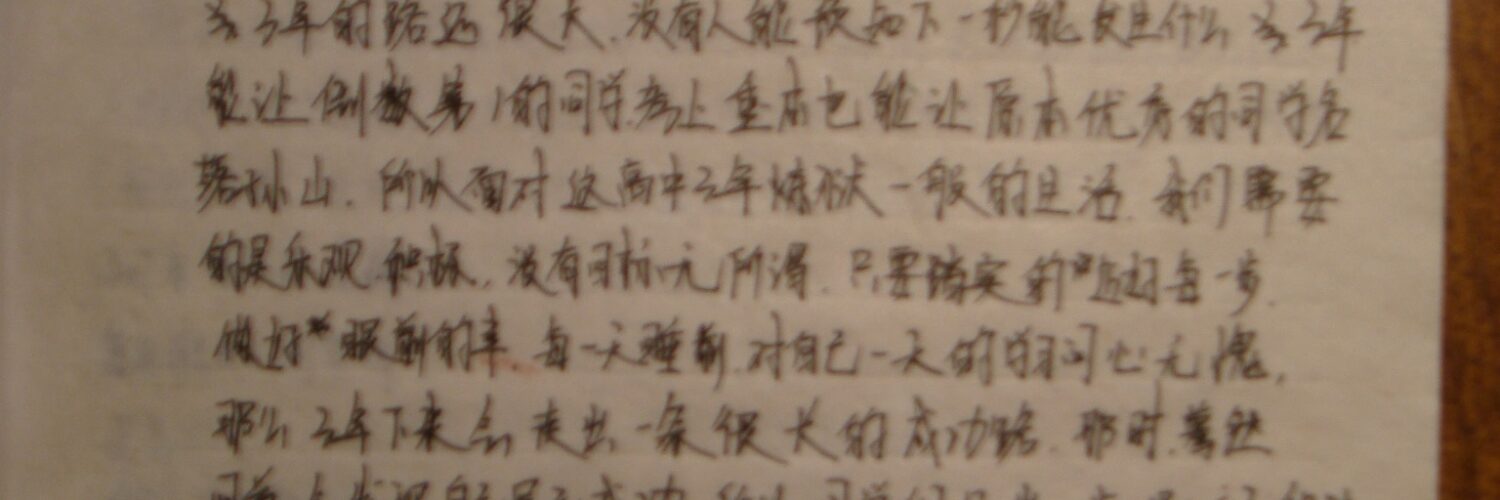 三年的路还很长，没有人能预知下一秒能发生什么，三年
能让倒数第1的同学考上重本也能让原本优秀的同学名
落孙山。所以面对这高中三年炼狱一般的生活，我们需要
的是乐观、积极，没有目标一无所得，只要踏实的走好每一步，
做好眼前的事，每一天睡前，对自己一天的学习问心无愧，
那么三年下来会走出一条很长的成功路，那时，蓦然